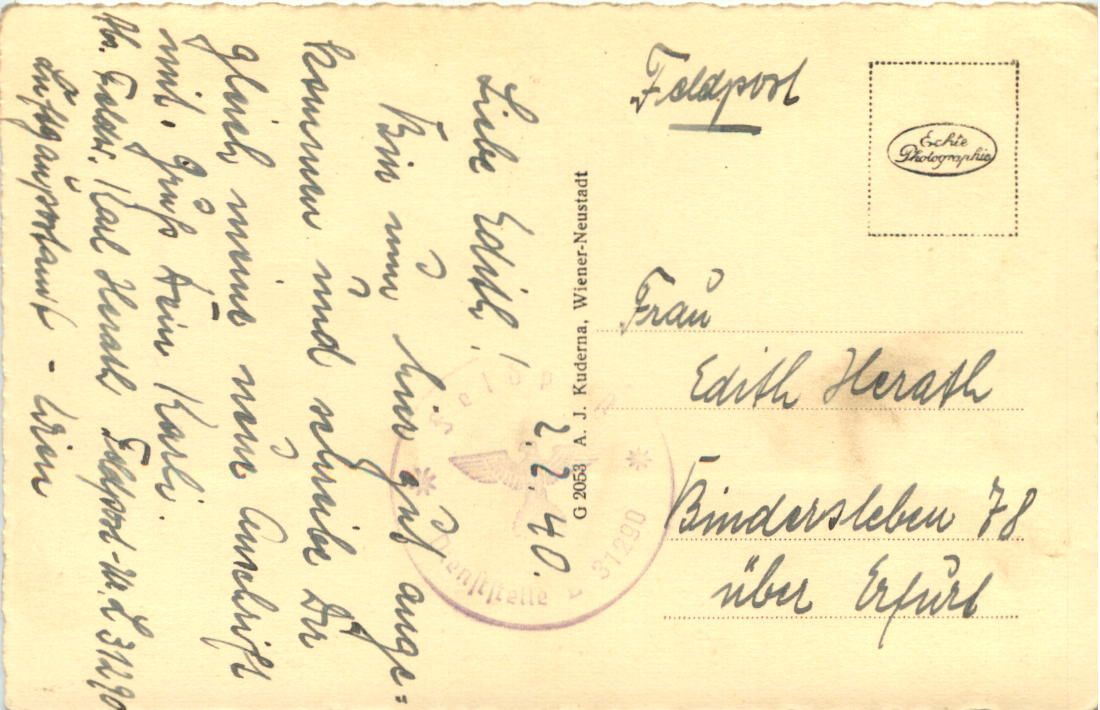 Feldpost
Echte
Photographie
Liebe Edith!
2.2.40.
Bin nun hier gut ange=
kommen und schreibe Dir
gleich meine neue Anschrift
mit. Gruß Dein Karli.
Feldpost-Nr. L 31290
Karl Herath
Luftgaupostamt - Wien
G 2053 A. J. Kuderna, Wiener-Neustadt
Feldp
Dienststelle L 31290
Frau
Edith Herath
Bindersleben 78
über Erfurt